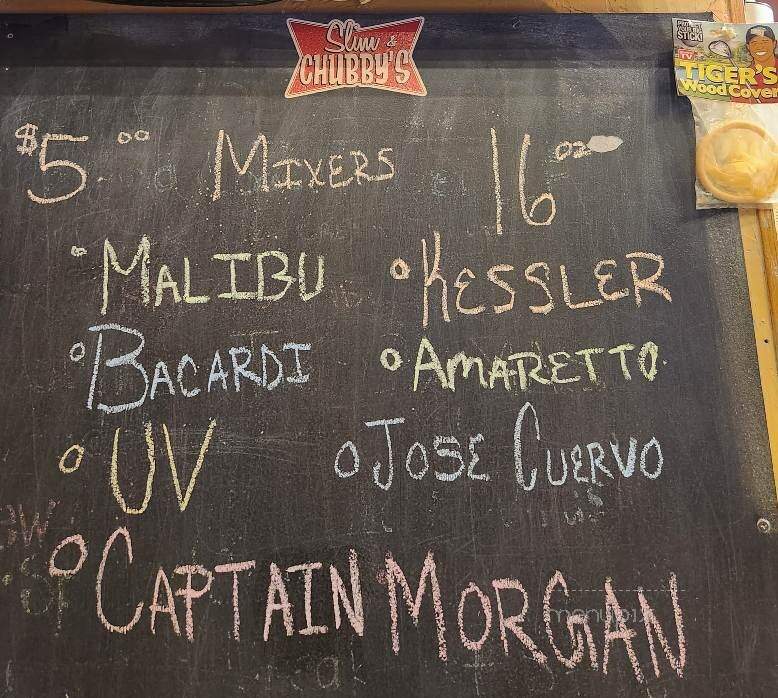 Slim &
CHUBBY'S
TIGER'S
Wood Cover
$5.00 MIXERS 16 oz
°MALIBU °KESSLER
°BACARDI °AMARETTO
°UV °JOSE CUERVO
°CAPTAIN MORGAN
menupix